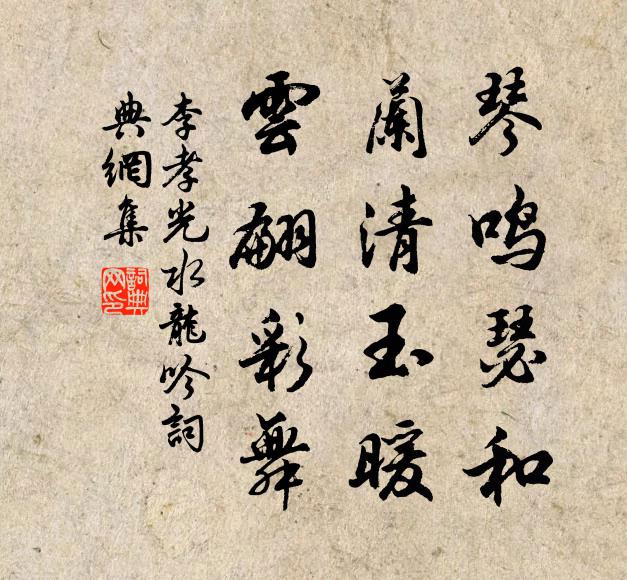 琴鸣瑟和
蘭清玉暖
雲翩彩舞
李孝光水龍吟詞
典網集
詞典網印